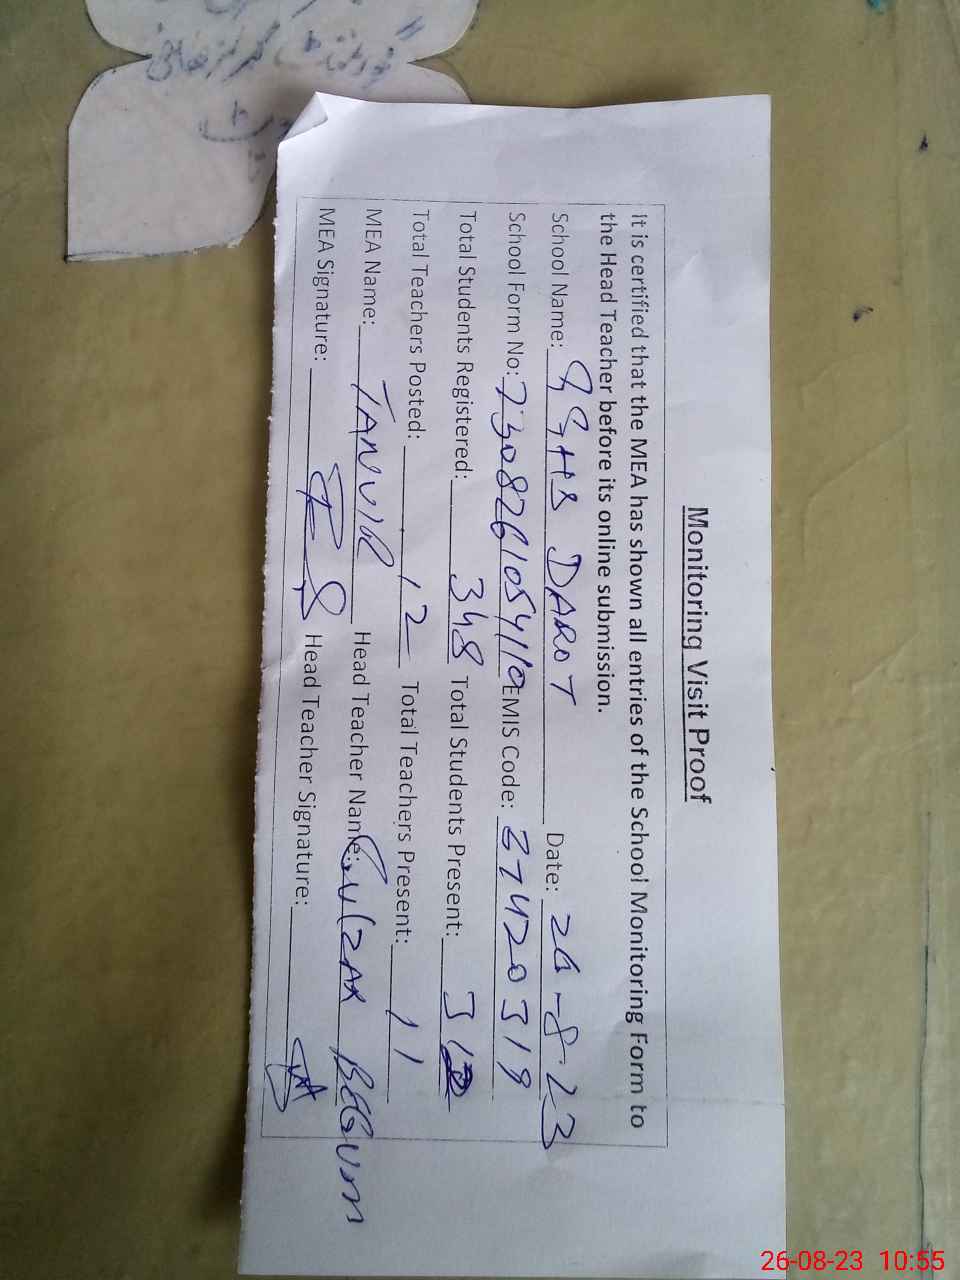 Monitoring Visit Proof
It is certified that the MEA has shown all entries of the School Monitoring Form to
the Head Teacher before its online submission.
School Name: GGHS DAROT Date: 26-8-23
School Form No: 7308261054110 EMIS Code: 37420319
Total Students Registered: 348 Total Students Present: 31
Total Teachers Posted: 12 Total Teachers Present: 11
MEA Name: TANVIR Head Teacher Name: GULZAR BEGUM
MEA Signature: Head Teacher Signature:
26-08-23 10:55